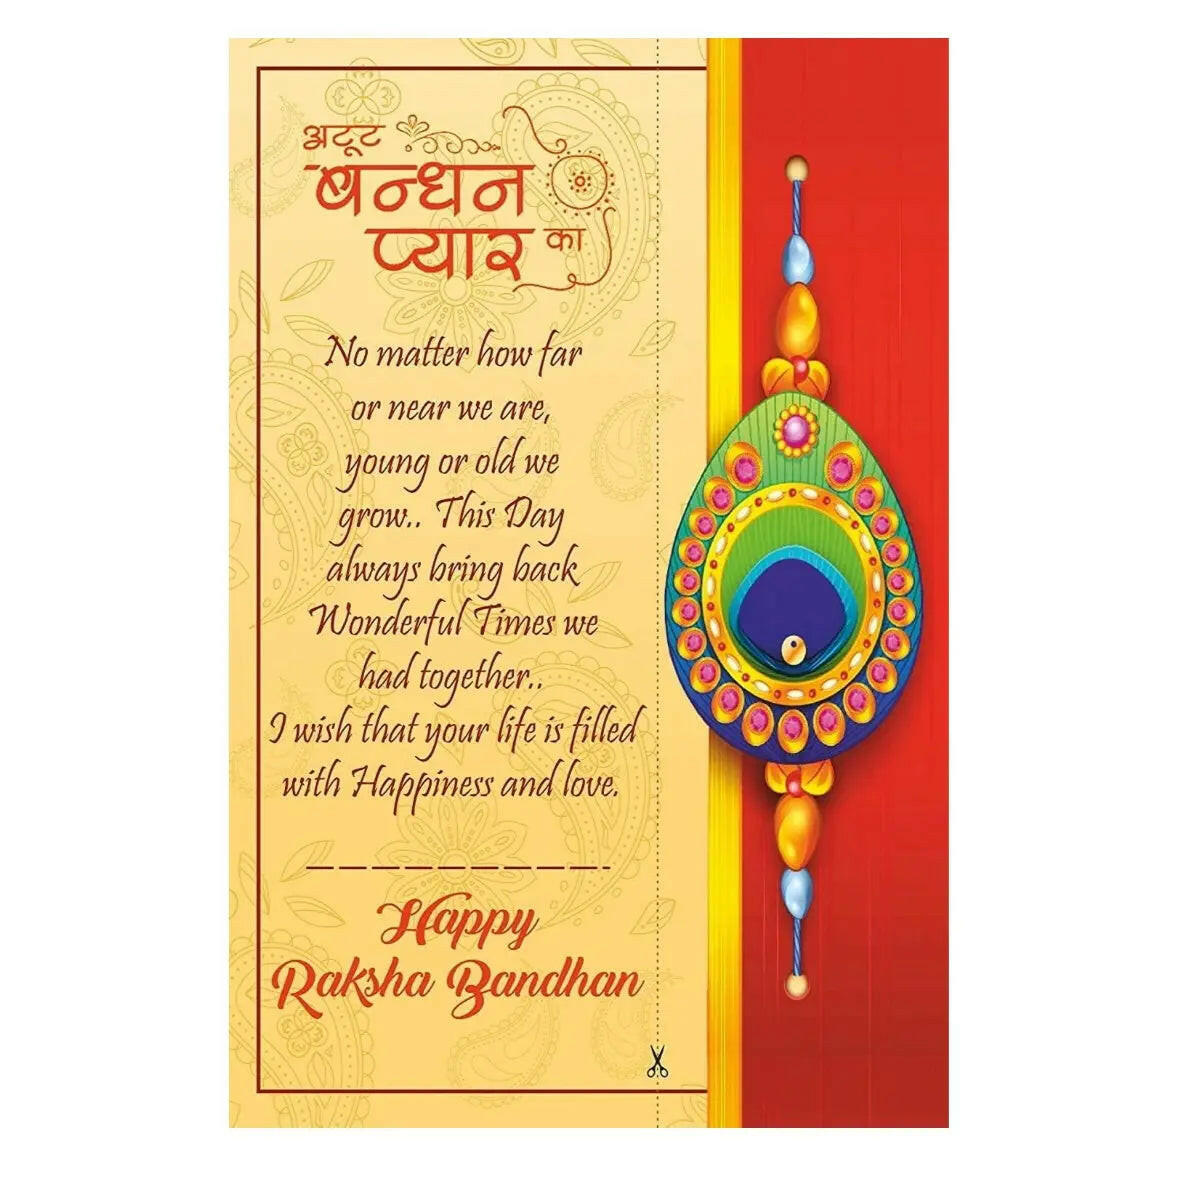 अटूट
बन्धन
प्यार का
No matter how far
or near we are,
young or old we
grow.. This Day
always bring back
Wonderful Times we
had together..
I wish that your life is filled
with Happiness and love.
Happy
Raksha Bandhan